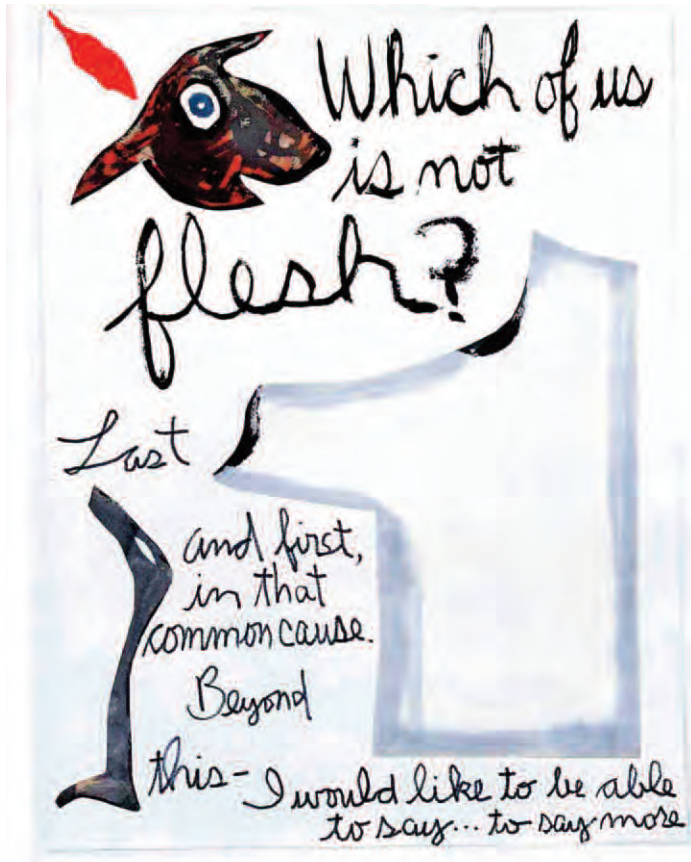 Which of us
is not
flesh?
Last
and first,
in that
common cause.
Beyond
this- I would like to be able
to say... to say more